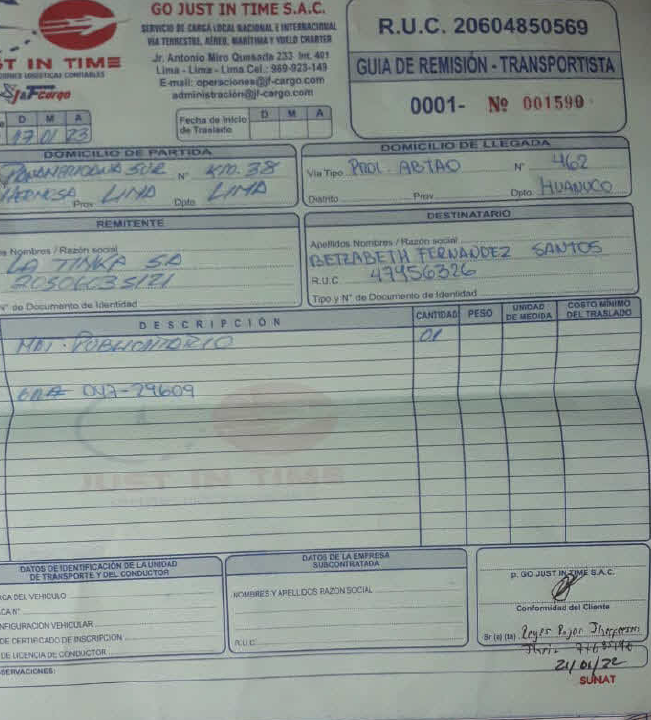 GO JUST IN TIME S.A.C.
SERVICIO DE CARGA LOCAL NACIONAL E INTERNACIONAL
VIA TERRESTRE, AÉREO, MARITIMA Y VUELO CHARTER
Jr. Antonio Miro Quesada 233 Int. 401
Lima - Lima - Lima Cel.: 989-923-149
E-mail: operaciones@jf-cargo.com
administración@jf-cargo.com
ST IN TIME
J&F Cargo
R.U.C. 20604850569
GUIA DE REMISIÓN - TRANSPORTISTA
0001- Nº 001590
D M A
17 01 23
Fecha de Inicio de Traslado D M A
DOMICILIO DE PARTIDA
PANAMERICANA SUR Nº KM. 38
HERMOSA Prov. LIMA Dpto. LIMA
DOMICILIO DE LLEGADA
Vía Tipo PROL. ABTAO Nº 462
Distrito Prov. Dpto. HUANUCO
REMITENTE
Nombres / Razón social
LA TINKA SA
20506035121
Nº de Documento de Identidad
DESTINATARIO
Apellidos Nombres / Razón social
BETZABETH FERNANDEZ SANTOS
R.U.C. 47956326
Tipo y Nº de Documento de Identidad
DESCRIPCIÓN CANTIDAD PESO UNIDAD DE MEDIDA COSTO MÍNIMO DEL TRASLADO
MAT. PUBLICITARIO 01
GRR 047-29609
JUST IN TIME
DATOS DE IDENTIFICACIÓN DE LA UNIDAD
DE TRANSPORTE Y DEL CONDUCTOR
RCA DEL VEHICULO
ACA Nº
NFIGURACION VEHICULAR
DE CERTIFICADO DE INSCRIPCION
DE LICENCIA DE CONDUCTOR
SERVACIONES:
DATOS DE LA EMPRESA
SUBCONTRATADA
NOMBRES Y APELLIDOS RAZON SOCIAL
R.U.C.
p. GO JUST IN TIME S.A.C.
Conformidad del Cliente
Sr (a) (ta) Reyes
24/01/22
SUNAT